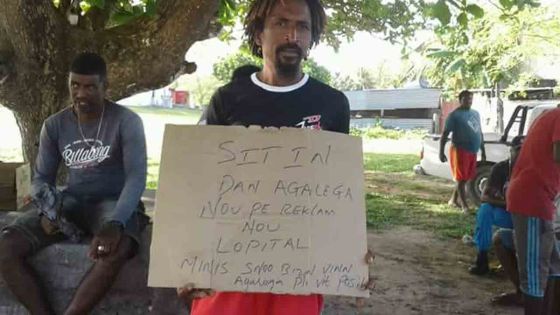 Billabong
SIT IN
DAN AGALEGA
NOU PE REKLAM
NOU
LOPITAL
MINIS SNOO BIZIN VINN
Agalega Pli vit Posib